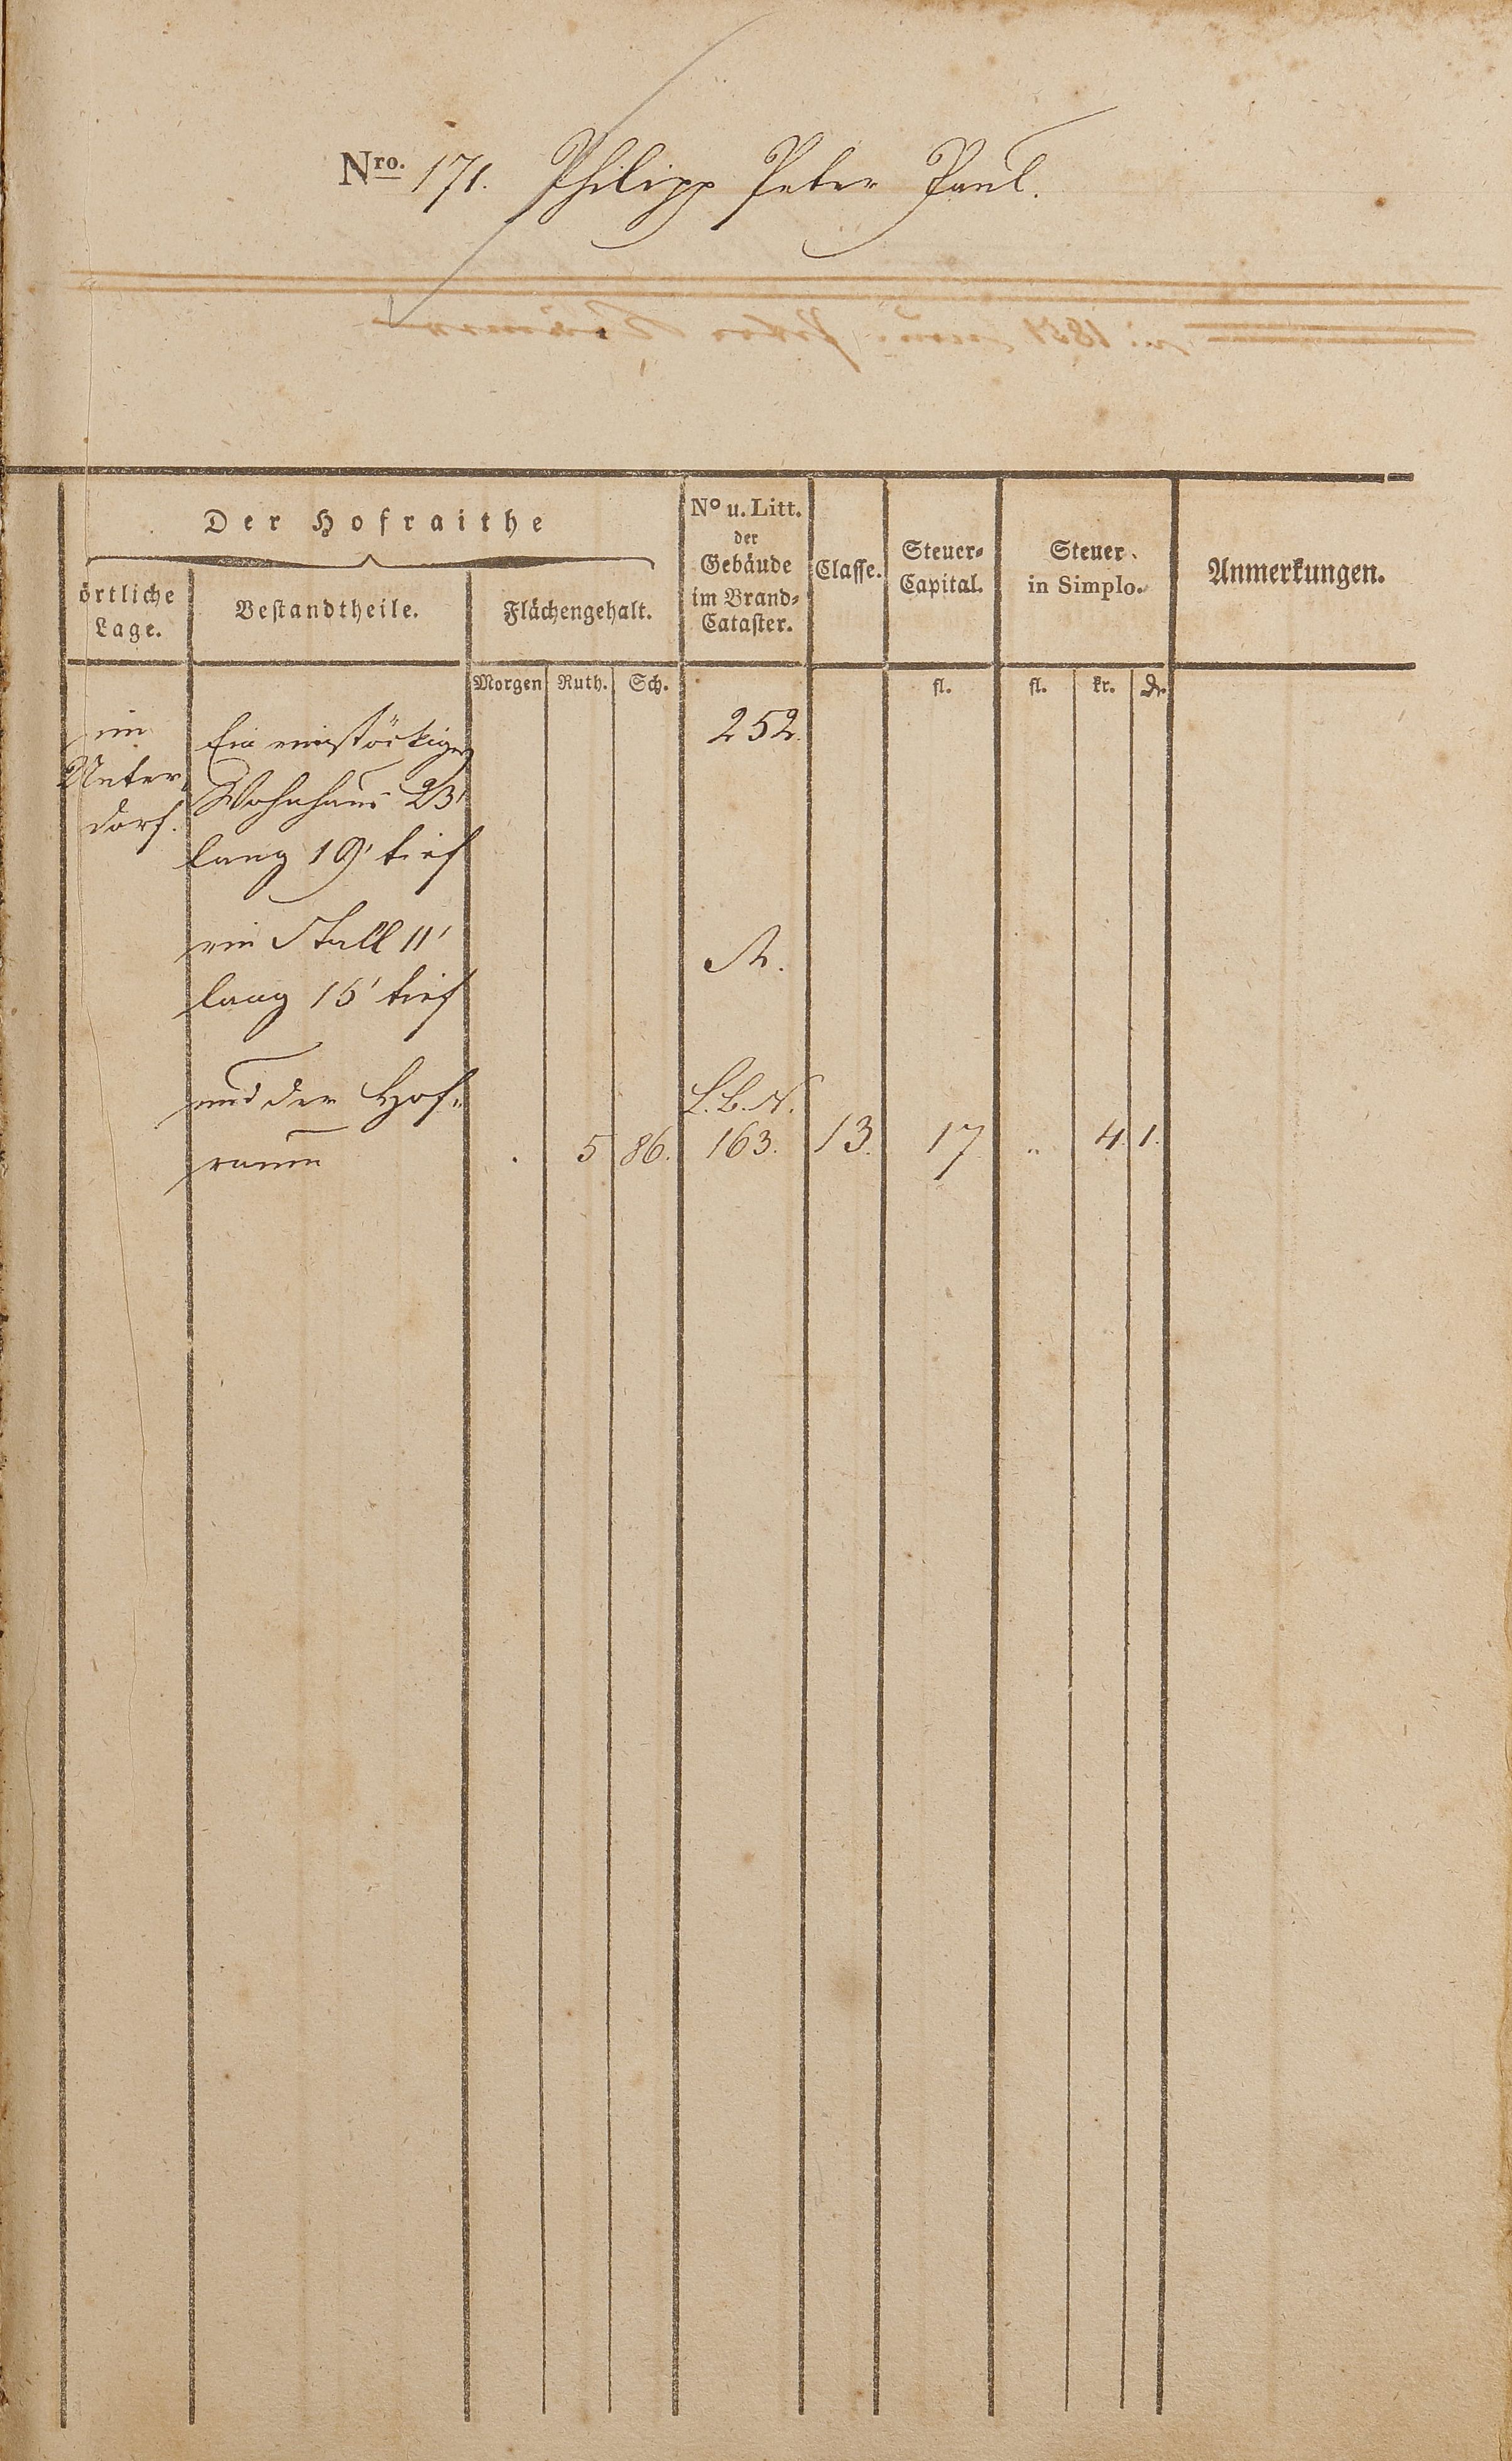 Nro. 171. Philipp Peter Paul.
Der Hofraithe
örtliche Lage.
Bestandtheile.
Flächengehalt.
No u. Litt. der Gebäude im Brand-Cataster.
Classe.
Steuer-Capital.
Steuer in Simplo.
Anmerkungen.
Morgen Ruth. Sch. fl. fl. kr. dr.
im Ein einstöckiges 252.
Unter- Wohnhaus 23'
dorf.
lang 19' tief
ein Stall 11'
lang 15' tief
und der Hof- L. B. N.
raum . 5 86. 163. 13. 17 .. 4. 1.